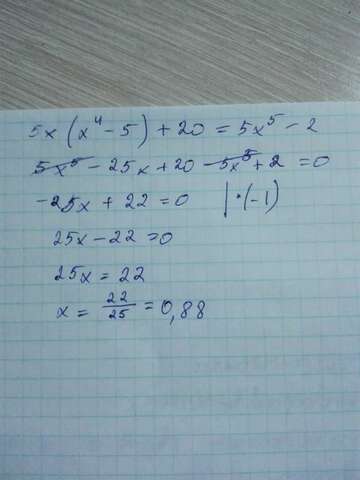 5x (x⁴ - 5) + 20 = 5x⁵ - 2
5x⁵ - 25x + 20 - 5x⁵ + 2 = 0
-25x + 22 = 0 | · (-1)
25x - 22 = 0
25x = 22
x = 22/25 = 0,88